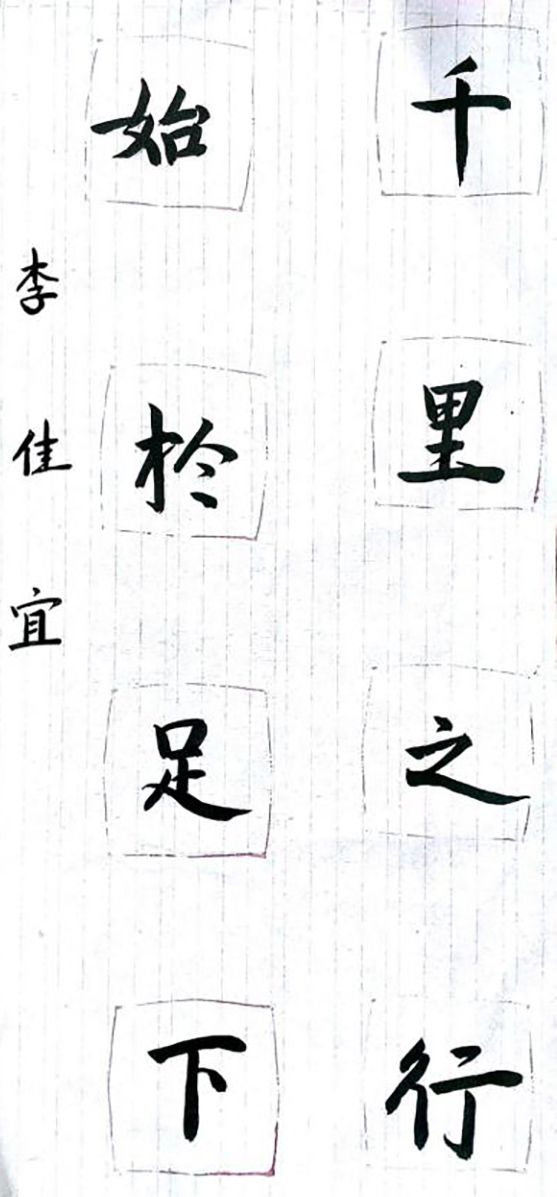 千里之行
始於足下
李佳宜